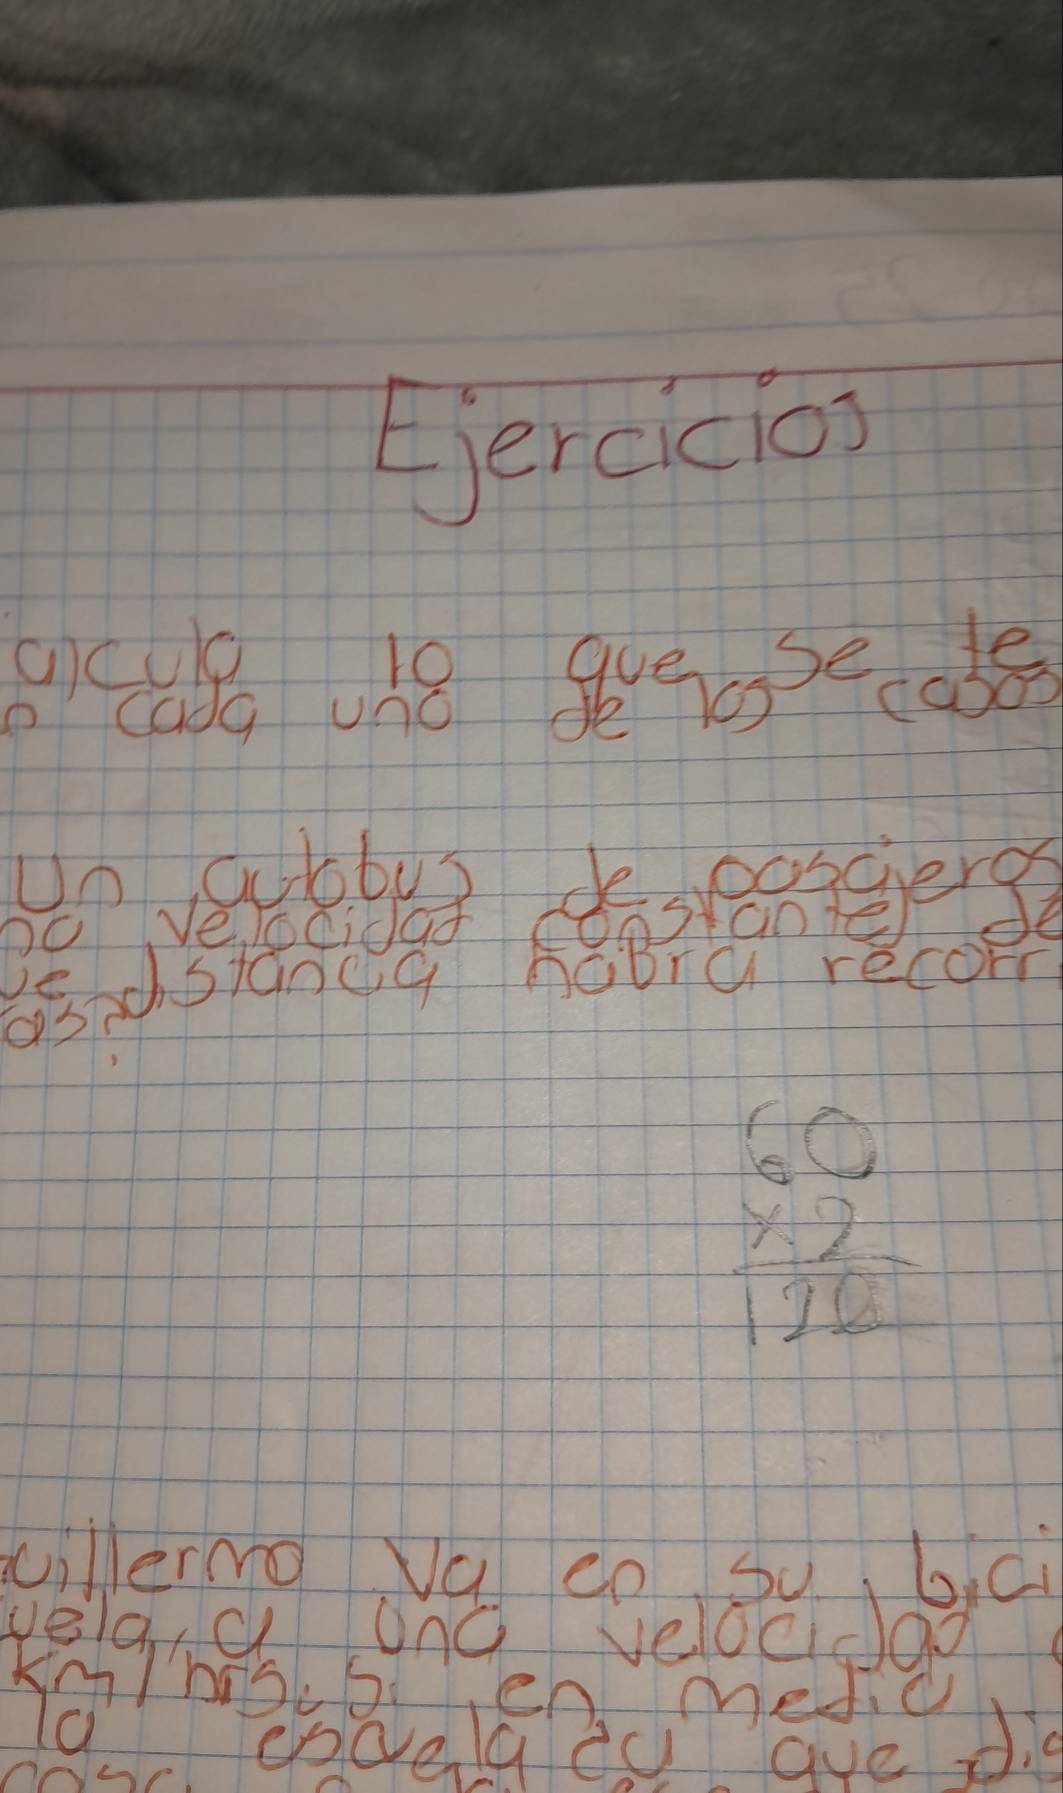 Ejercicios
alcula lo que se te
n cada uno de los casos
Un autobus de pasajeros
na velocidad constante de
ue distancia habra recorr
as?
60
x 2
120
uillermo va en su bici
uela, a una velocidad
km/hrs. Si en media
la escuela ¿a que dis
casa